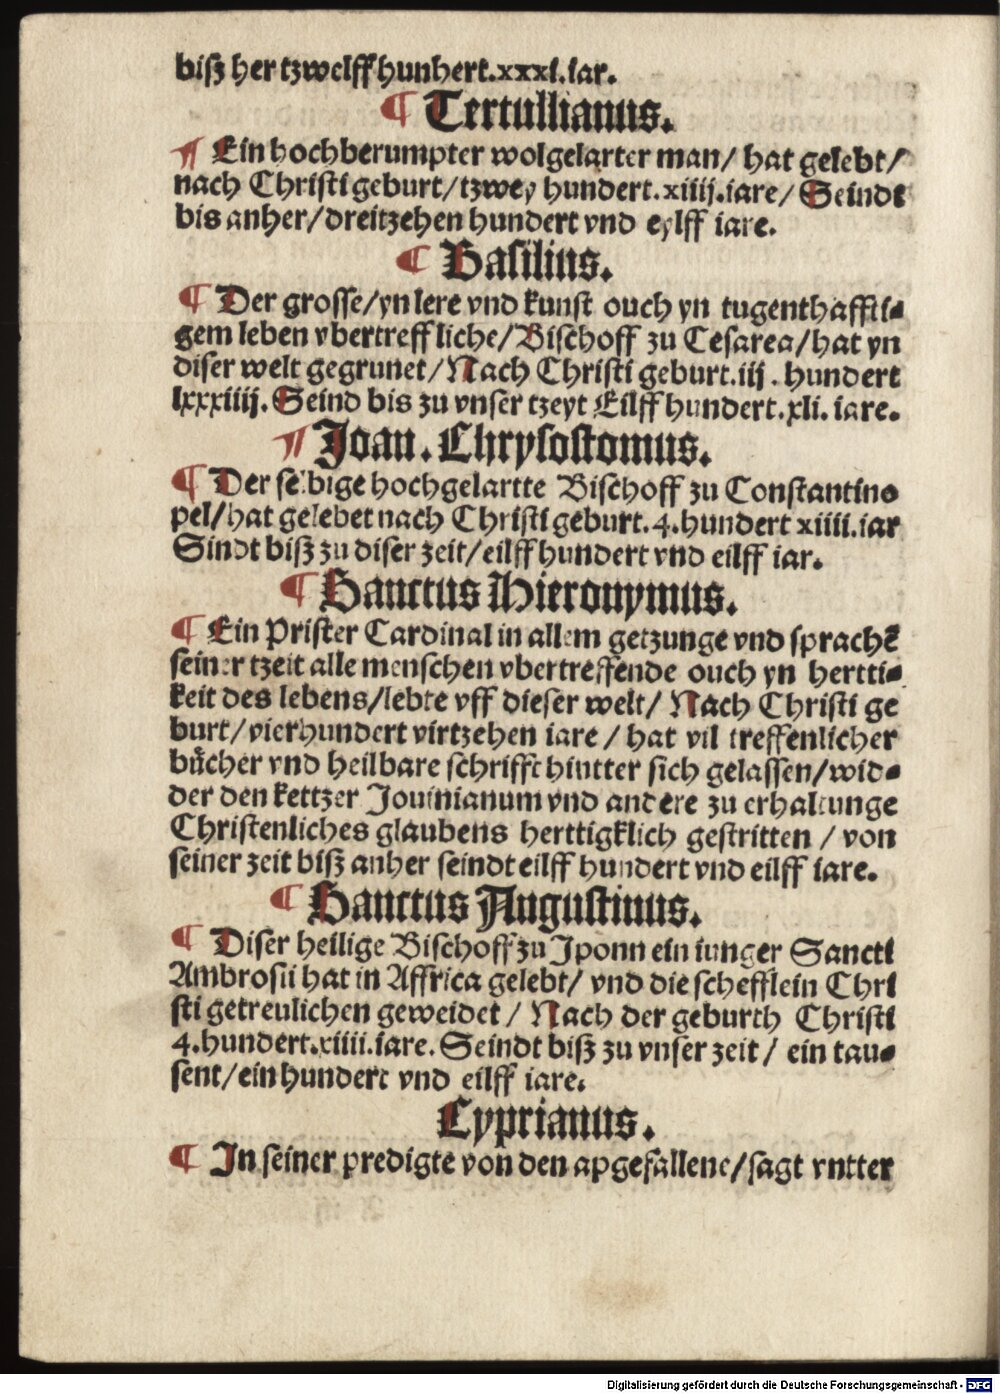 bisz her tzwelff hunhert.xxxl.iar.
¶ Tertullianus.
¶ Ein hochberumpter wolgelarter man/ hat gelebt/
nach Christi geburt/tzwey hundert.xiiij.iare/ Seindt
bis anher/dreitzehen hundert vnd eylff iare.
¶ Basilius.
¶ Der grosse/yn lere vnd kunst ouch yn tugenthaffti-
gem leben vbertreffliche/Bischoff zu Cesarea/hat yn
diser welt gegrunet/Nach Christi geburt.iij. hundert
lxxxiiij. Seind bis zu vnser tzeyt Eilff hundert.xli. iare.
¶ Joan. Chrysostomus.
¶ Der selbige hochgelartte Bischoff zu Constantino
pel/hat gelebet nach Christi geburt.4.hundert xiiii.iar
Sindt bisz zu diser zeit/eilff hundert vnd eilff iar.
¶ Sanctus Hieronymus.
¶ Ein Prister Cardinal in allem getzunge vnd sprachē
seiner tzeit alle menschen vbertreffende ouch yn hertti-
keit des lebens/lebte vff dieser welt/ Nach Christi ge
burt/vierhundert virtzehen iare / hat vil treffenlicher
bücher vnd heilbare schrifft hintter sich gelassen/wid-
der den kettzer Jouinianum vnd andere zu erhaltunge
Christenliches glaubens herttigklich gestritten / von
seiner zeit bisz anher seindt eilff hundert vnd eilff iare.
¶ Sanctus Augustinus.
¶ Diser heilige Bischoff zu Jponn ein iunger Sancti
Ambrosii hat in Affrica gelebt/ vnd die schefflein Chri
sti getreulichen geweidet / Nach der geburth Christi
4.hundert.xiiii.iare. Seindt bisz zu vnser zeit / ein tau-
sent/ein hundert vnd eilff iare.
Cyprianus.
¶ In seiner predigte von den apgefallene/sagt vntter
Digitalisierung gefördert durch die Deutsche Forschungsgemeinschaft - DFG